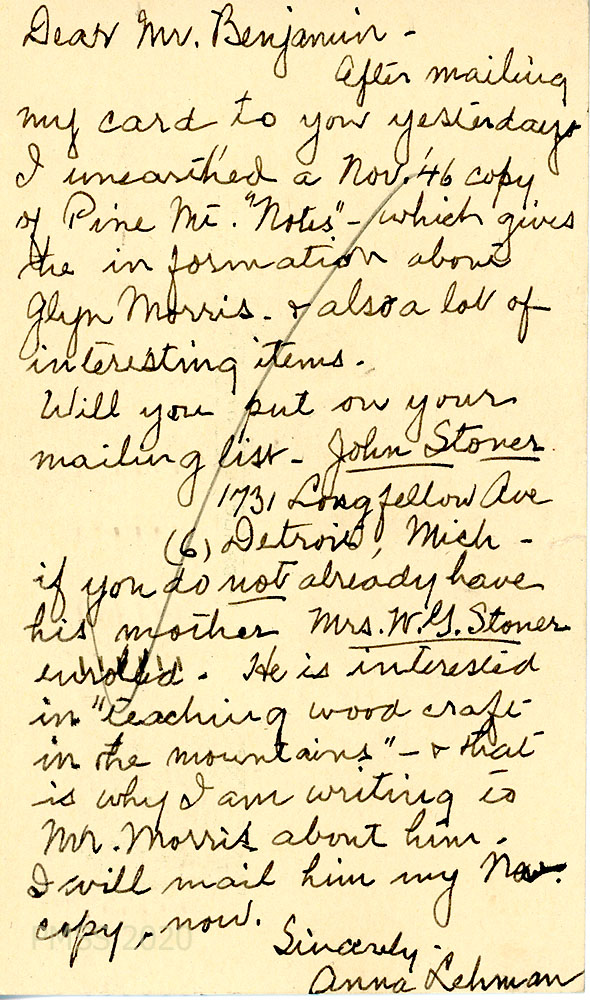 Dear Mr. Benjamin -
After mailing
my card to you yesterday,
I unearthed a Nov. '46 copy
of Pine Mt. "Notes" - which gives
the information about
Glyn Morris - & also a lot of
interesting items.
Will you put on your
mailing list - John Stoner
1731 Longfellow Ave
(6) Detroit, Mich -
if you do not already have
his mother Mrs. W. G. Stoner
enrolled. He is interested
in "teaching wood craft
in the mountains" - & that
is why I am writing to
Mr. Morris about him.
I will mail him my Nov.
copy, now.
Sincerely -
Anna Lehman
PMSS 2020